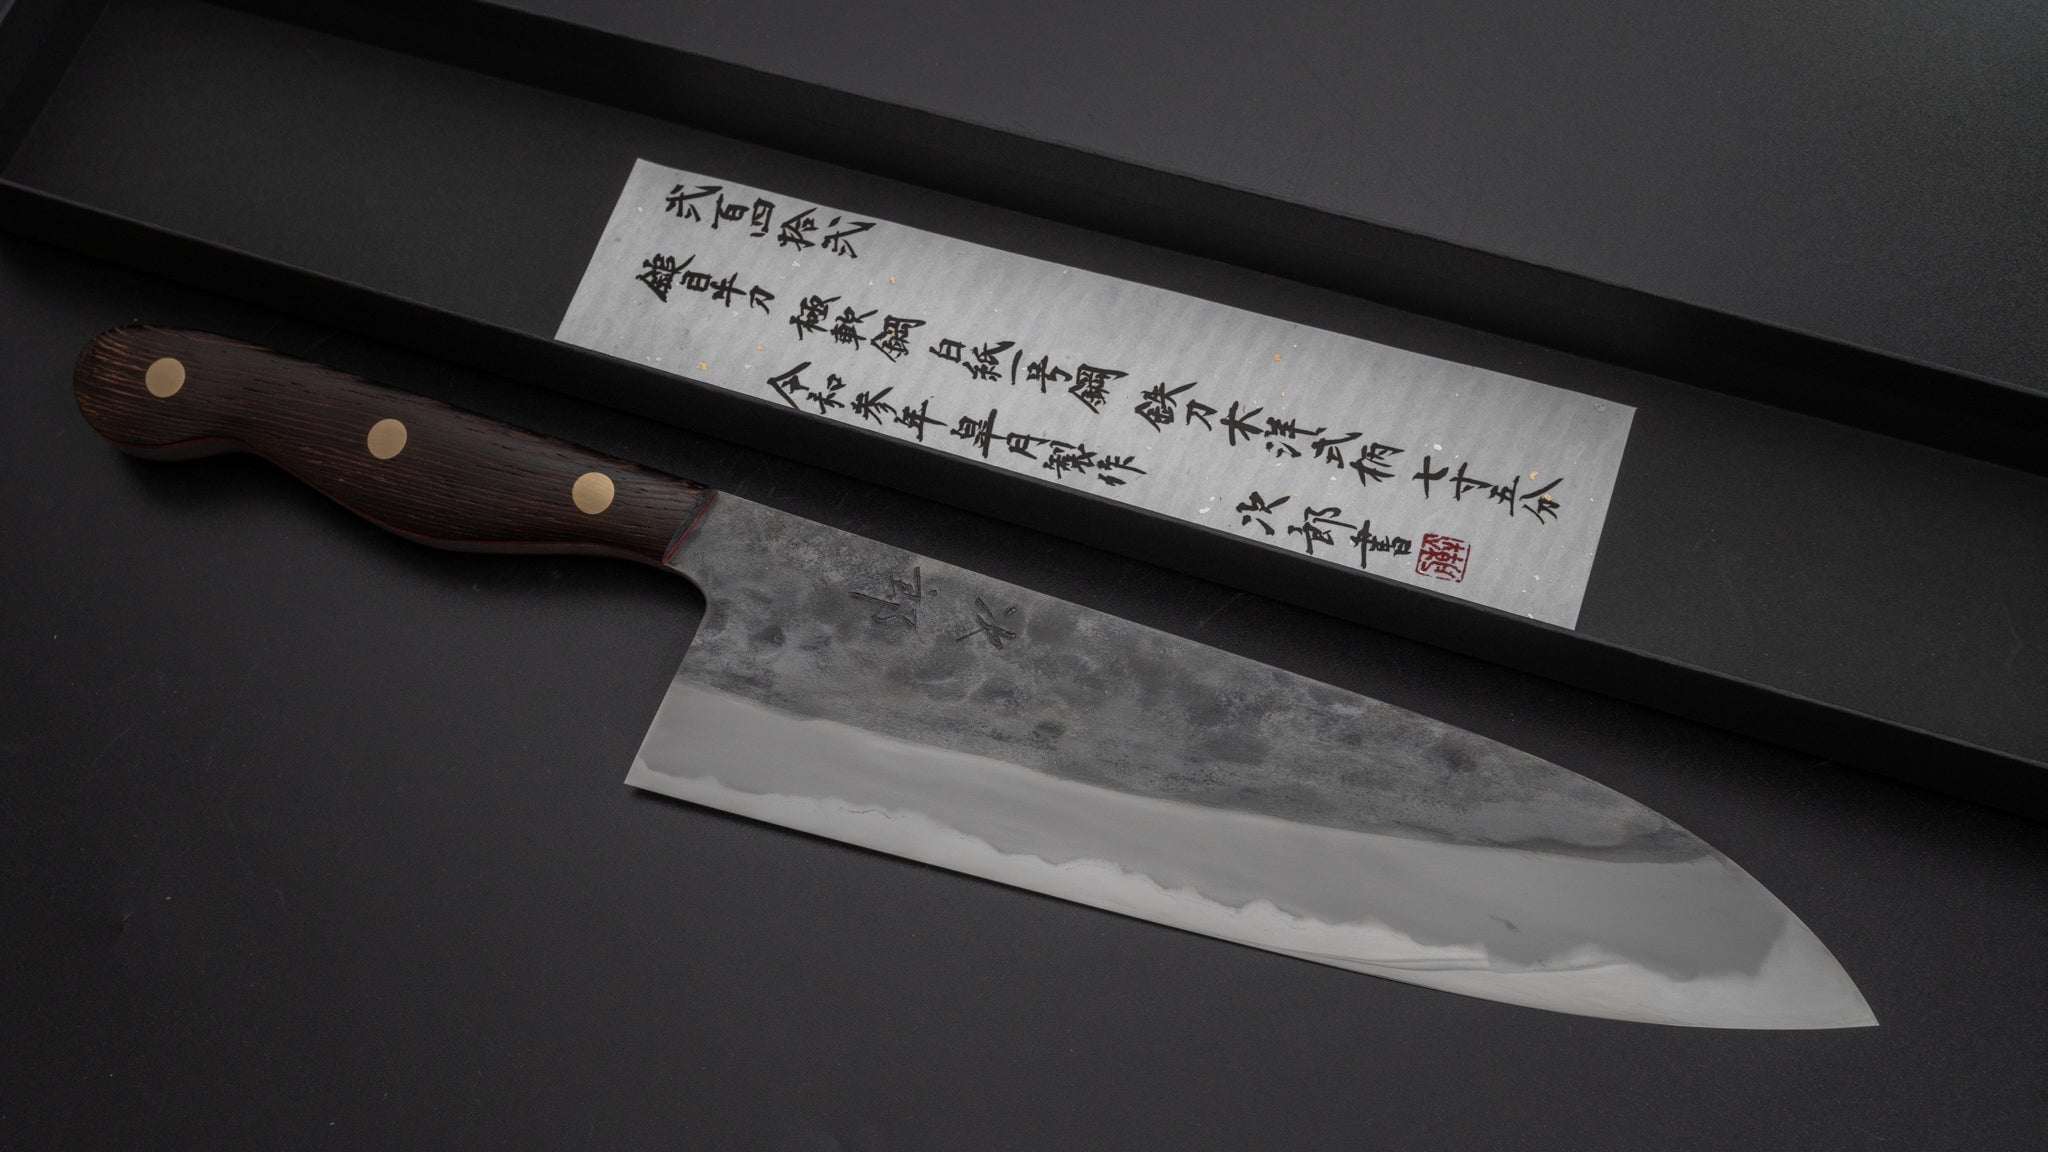 弐百四拾弐
鎚目牛刀 極軟鋼 白紙一号鋼 鉄刀木洋式柄 七寸五分
令和参年皐月製作 次郎書